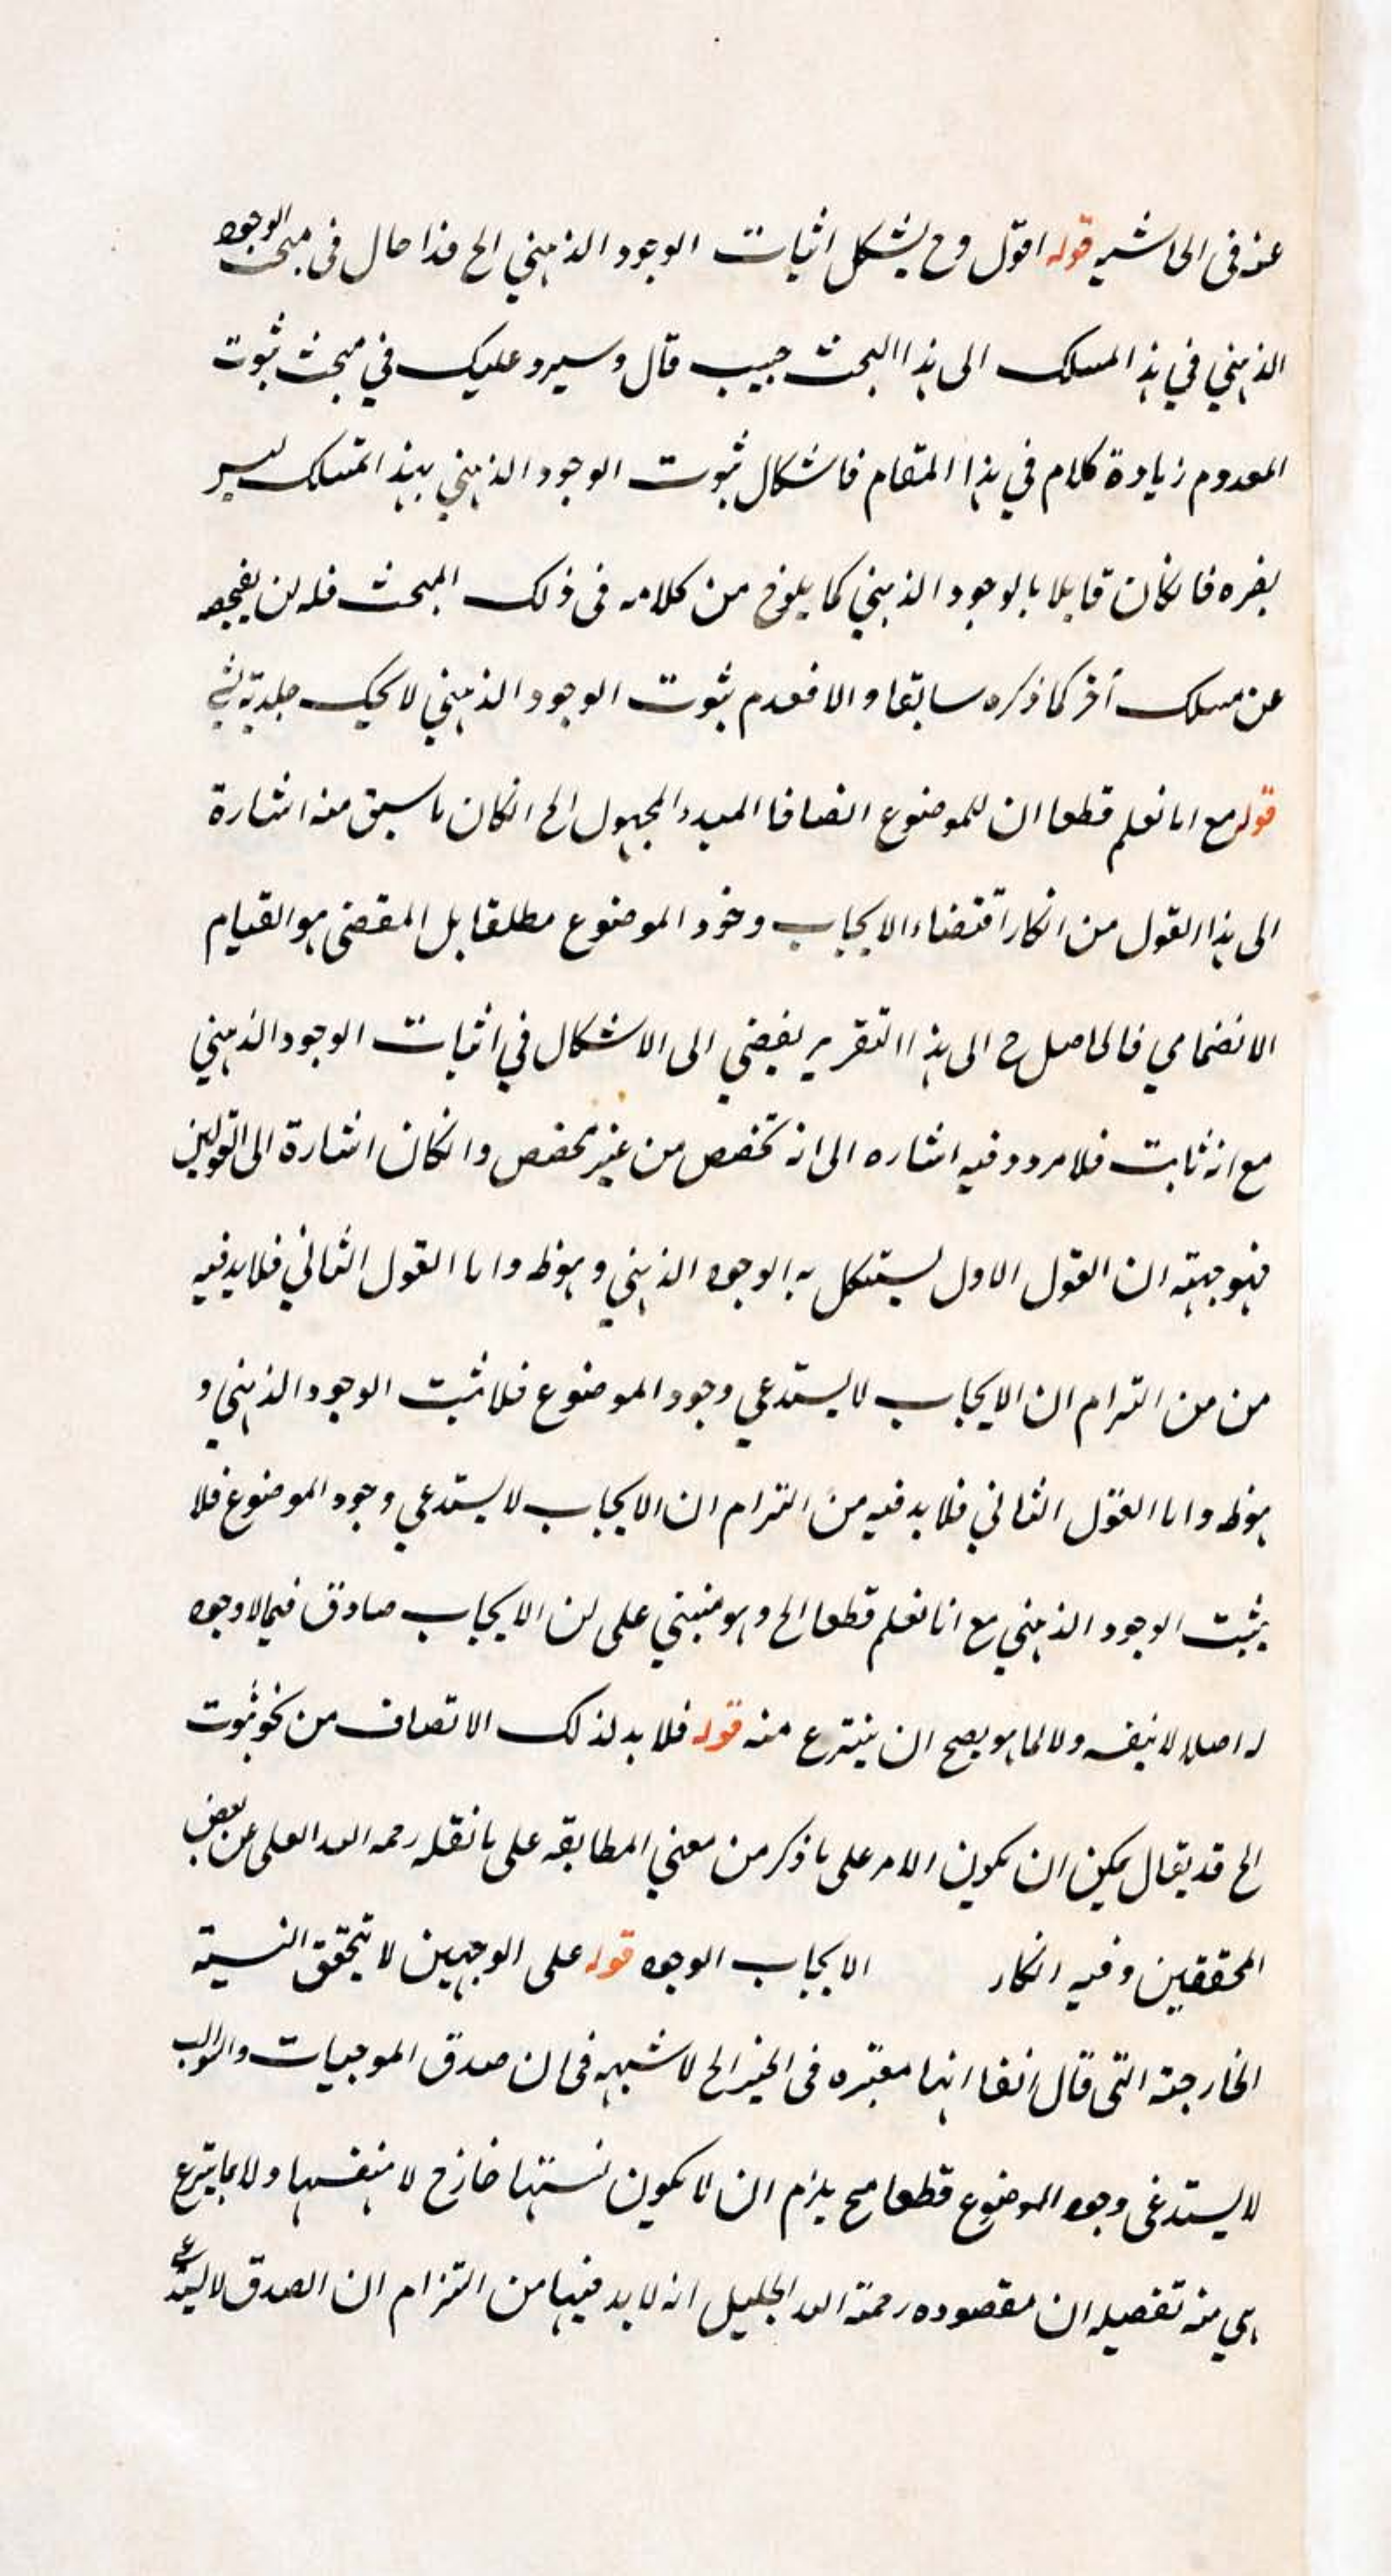 عنه في الحاشيه قوله اقول وح يشكل اثبات الوجود الذهني الخ قذا حال في مبحث الوجود
الذهني في هذ المسلك الى هذا البحث حيث قال وسيرد عليك في مبحث ثبوت
المعدوم زيادة كلام في هذا المقام فاشكال ثبوت الوجود الذهني بهذ المسلك ليس
يضره فانكان قايلا بالوجود الذهني كما يلوح من كلامه في ذلك المبحث فله ان
عن مسلك آخر كما ذكره سابقا والا فعدم ثبوت الوجود الذهني لا
قوله مع انا نعلم قطعا ان للموضوع اتصافا الخ انكان ما سبق منه اشارة
الى هذا القول من انكار اقتضاء الايجاب وجود الموضوع مطلقا بل المقضي هو القيام
الانضمامي فالحاصل ح الى هذا التقرير يفضي الى الاشكال في اثبات الوجود الذهني
مع انه ثابت فلا مرد وفيه اشاره الى انه تخصص من غير مخصص وانكان اشارة الى القولين
فتوجيهه ان القول الاول يستشكل به الوجود الذهني وهو ظ واما القول الثاني فلا بد فيه
من من التزام ان الايجاب لا يستدعي وجود الموضوع فلا ثبت الوجود الذهني و
هو ظ واما القول الثاني فلا بد فيه من التزام ان الايجاب لا يستدعي وجود الموضوع فلا
يثبت الوجود الذهني مع انا نعلم قطعا الخ وهو مبني على ان الايجاب صادق فيما لا وجود
له اصلا لا بنفسه ولا لما هو يصح ان ينتزع منه قوله فلا بد لذلك الاتصاف من نحو ثبوت
الخ قد يقال يمكن ان يكون الامر على ما ذكر من معني المطابقه على ما نقله رحمه الله العلى عن بعض
المحققين وفيه انكار الايجاب الوجود قوله على الوجهين لا يتحقق النسبة
الخارجية التي قال آنفا انها معتبره في الخبر الخ لا شبهه في ان صدق الموجبات والسوالب
لا يستدعي وجود الموضوع قطعا فح يلزم ان لا يكون نسبتها خارج لا بنفسها ولا بما ينتزع
هي منه تفصيله ان مقصوده رحمة الله الجليل انه لا بد فيها من التزام ان الصدق لا يستدعي